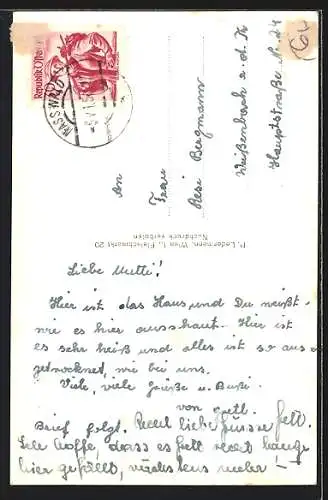 Republik Österreich
NASSWALD
An
Frau
Resi Bergmann
Weißenbach a. d. Tr.
Hauptstraße Nr. 24
P. Ledermann, Wien I., Fleischmarkt 20
Nachdruck verboten
Liebe Mutti!
Hier ist das Haus und Du weißt
wie es hier ausschaut. Hier ist
es sehr heiß und alles ist so aus-
getrocknet, wie bei uns.
Viele, viele Grüße u. Bussi
von
Brief folgt. Recht liebe Grüsse
hoffe, dass es recht lange
hier gefällt, wenigstens weiter!